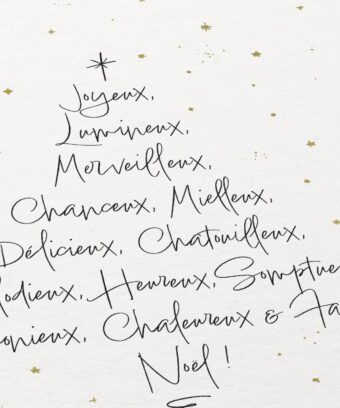 Joyeux,
Lumineux,
Merveilleux,
Chanceux, Mielleux,
Délicieux, Chatouilleux,
lodieux, Heureux, Somptue
onieux, Chaleureux & Fa
Noël !